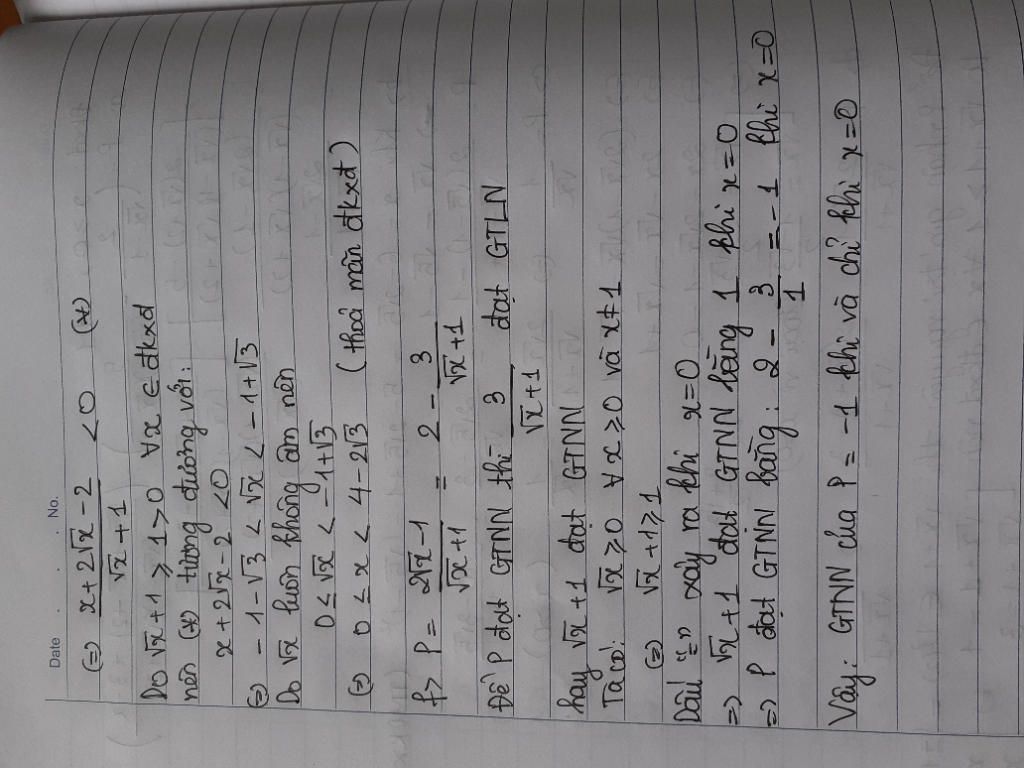 Date . . . No.
(=) x+2√x-2 / √x+1 < 0 (*)
Do √x+1 ≥ 1 > 0 ∀x ∈ đkxđ
nên (*) tương đương với:
x+2√x-2 <0
(=) -1-√3 < √x < -1+√3
Do √x luôn không âm nên
0 ≤ √x < -1+√3
(=) 0 ≤ x < 4-2√3 (thoả mãn đkxđ)
f> P = 2√x-1 / √x+1 = 2 - 3 / √x+1
Để P đạt GTNN thì 3 / √x+1 đạt GTLN
hay √x+1 đạt GTNN
Ta có: √x ≥ 0 ∀x≥0 và x≠1
(=) √x+1≥1
Dấu "=" xảy ra khi x=0
=> √x+1 đạt GTNN bằng 1 khi x=0
=> P đạt GTNN bằng: 2 - 3/1 = -1 khi x=0
Vậy: GTNN của P = -1 khi và chỉ khi x=0